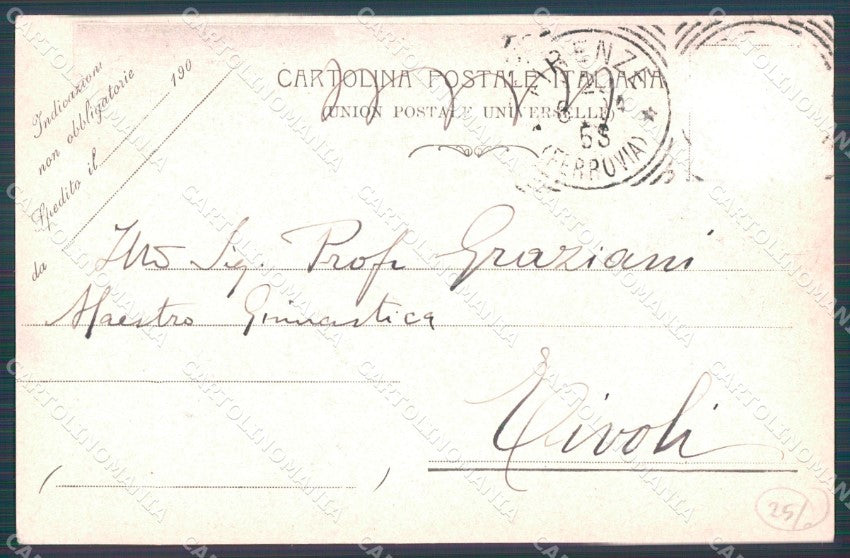 Indicazioni
non obbligatorie
Spedito il 190
da
CARTOLINA POSTALE ITALIANA
(UNION POSTALE UNIVERSELLE)
FIRENZE
(FERROVIA)
Illo Sig. Prof. Graziani
Maestro Ginnastica
Tivoli
( )
25/
CARTOLINOMANIA